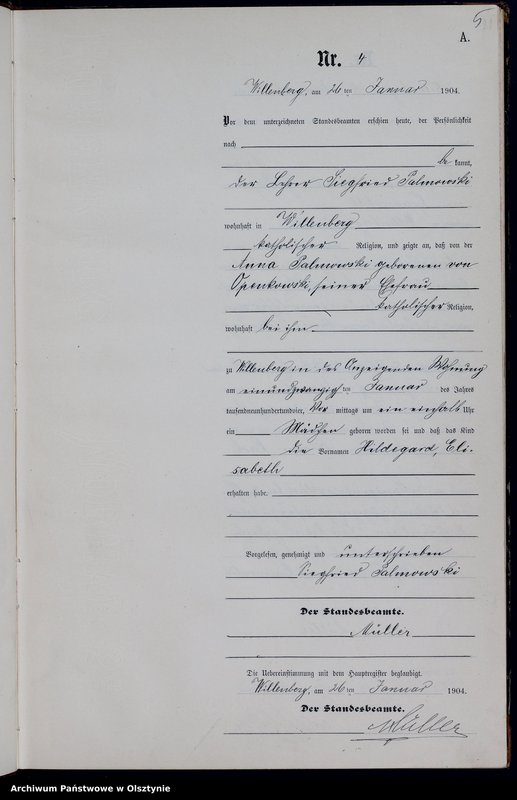 5
A.
Nr. 4
Willenberg, am 26 ten Januar 1904.
Vor dem unterzeichneten Standesbeamten erschien heute, der Persönlichkeit
nach
be kannt,
der Lehrer Siegfried Palmowski
wohnhaft in Willenberg
katholischer Religion, und zeigte an, daß von der
Anna Palmowski geborenen von
Openkowski, seiner Ehefrau
katholischer Religion,
wohnhaft bei ihm
zu Willenberg in des Anzeigenden Wohnung
am einundzwanzig ten Januar des Jahres
tausendneunhundertundvier, Vor mittags um ein einhalb Uhr
ein Mädchen geboren worden sei und daß das Kind
die Vornamen Hildegard, Eli-
sabeth
erhalten habe.
Vorgelesen, genehmigt und unterschrieben
Siegfried Palmowski
Der Standesbeamte.
Müller
Die Uebereinstimmung mit dem Hauptregister beglaubigt.
Willenberg, am 26 ten Januar 1904.
Der Standesbeamte.
Müller
Archiwum Państwowe w Olsztynie